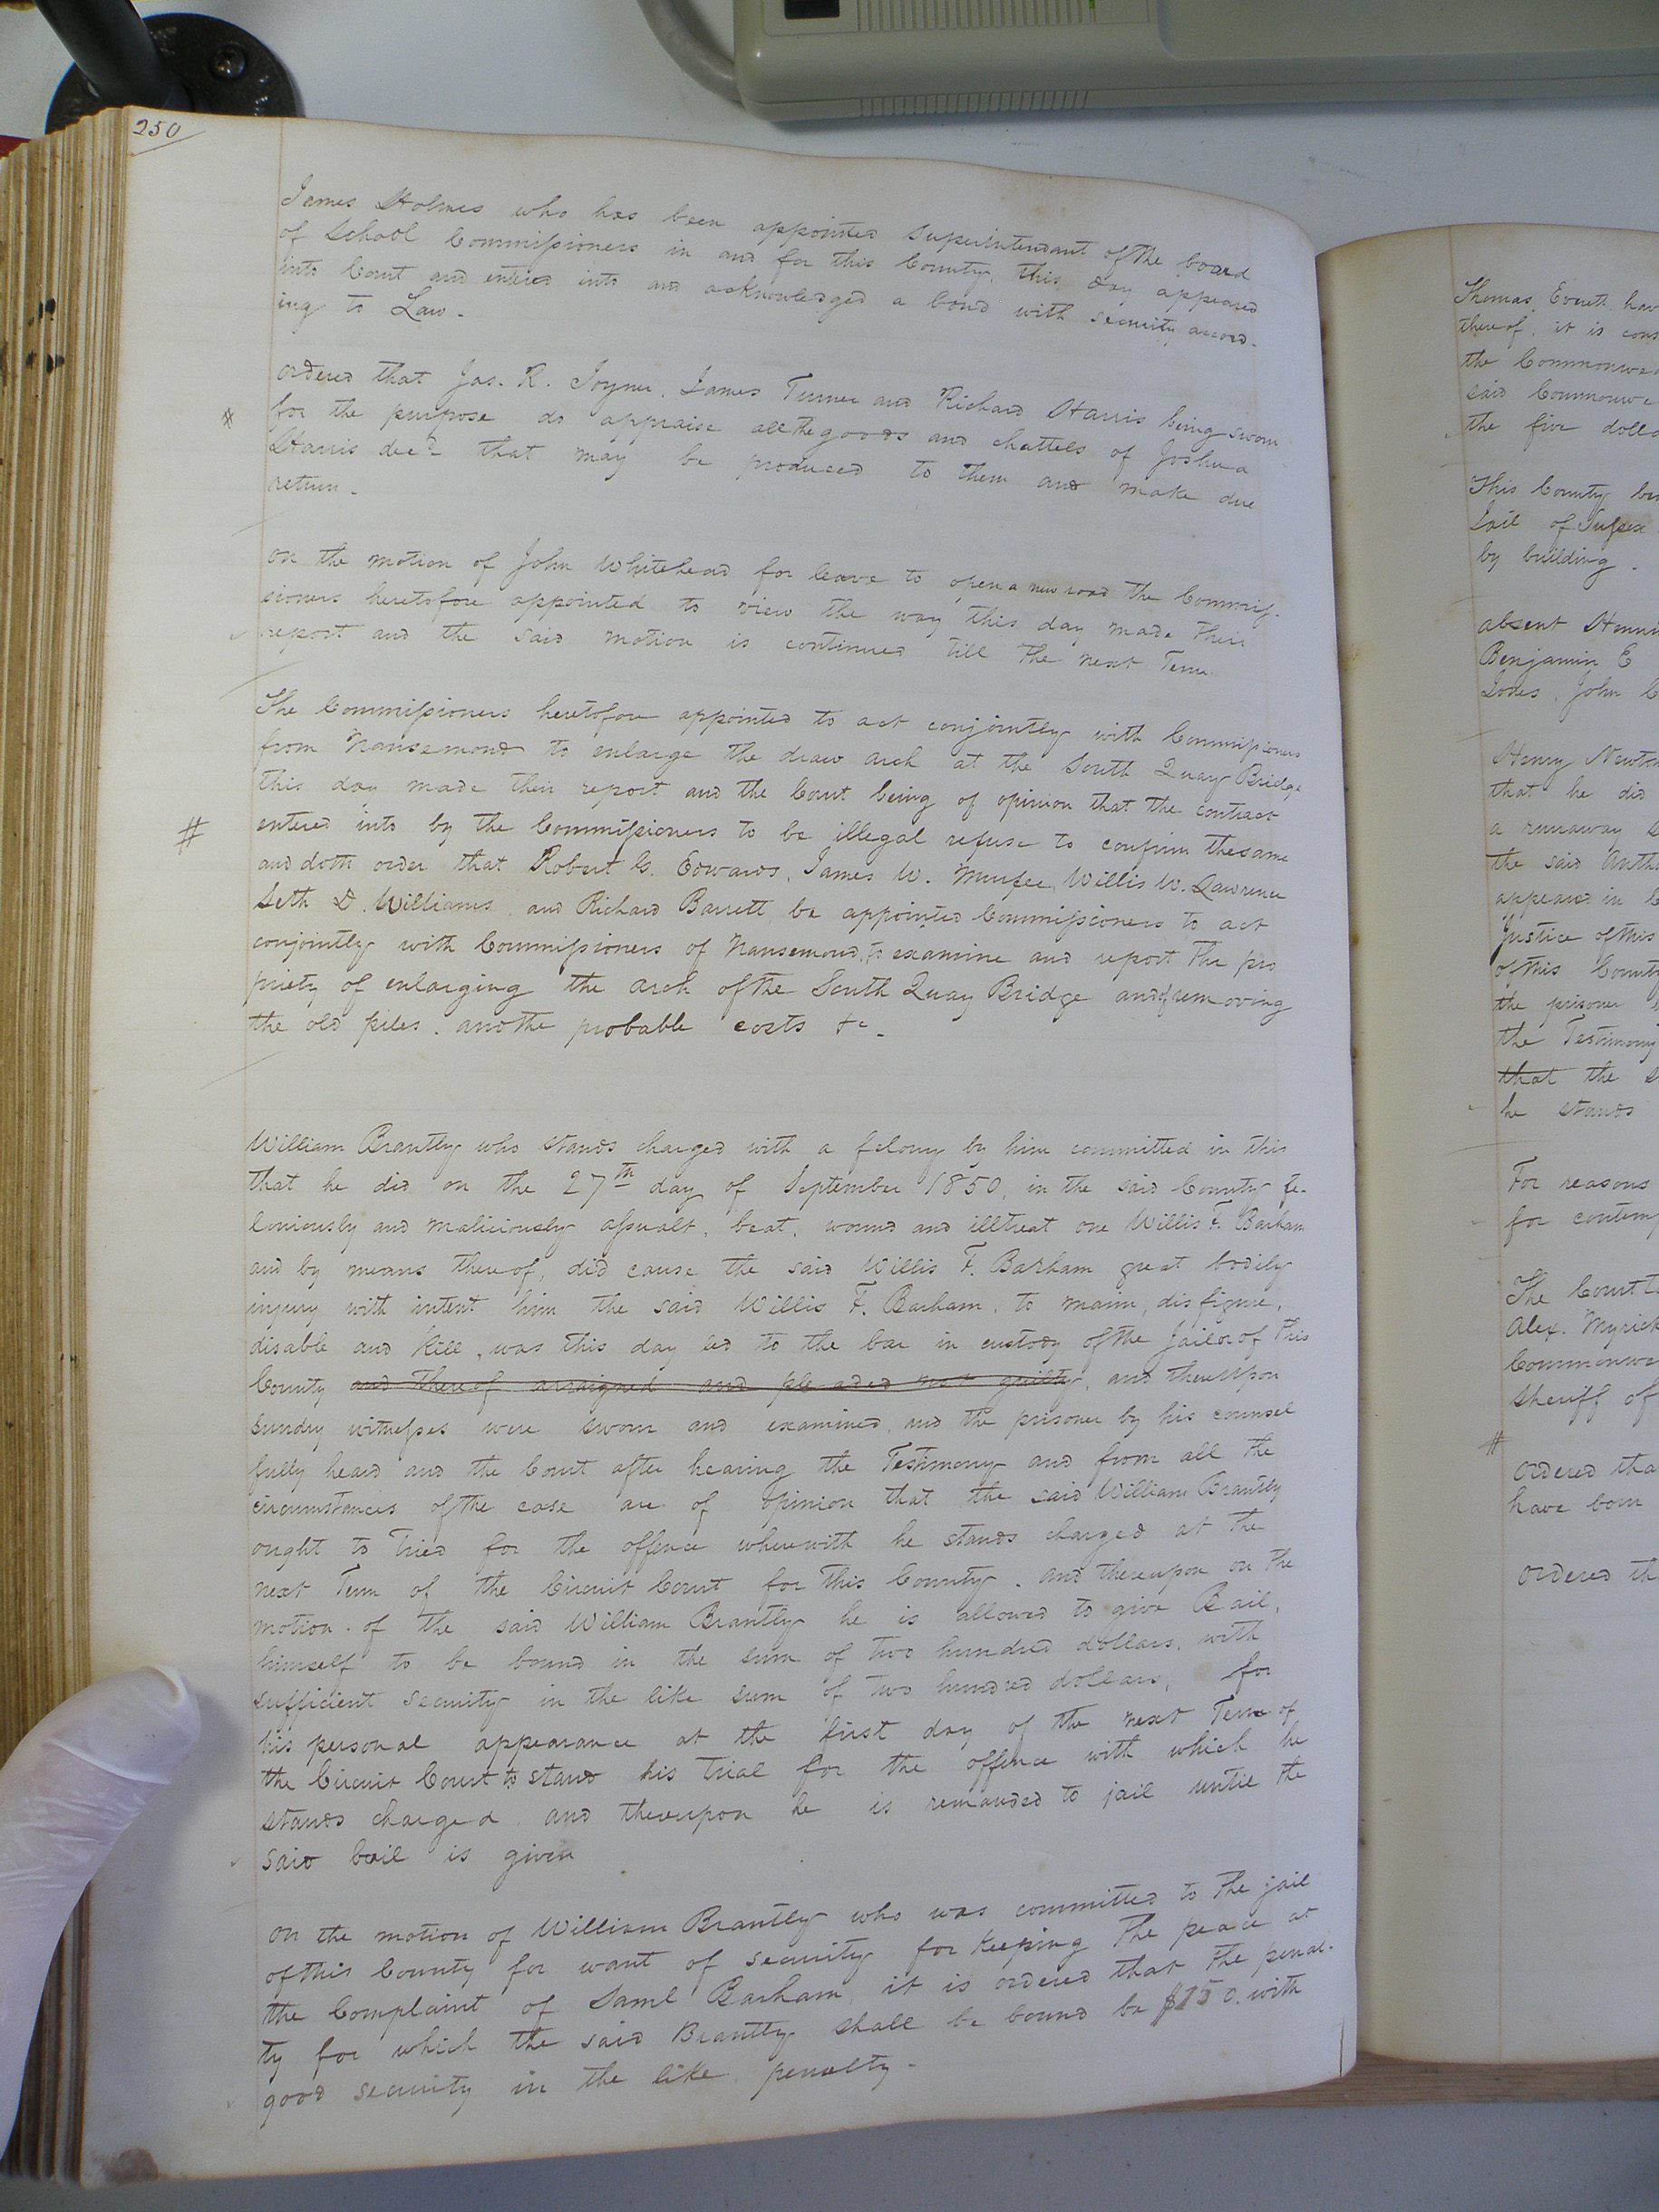 250
James Holmes who has been appointed superintendant of the board
of School Commissioners in and for this County, this day appeared
into Court and entered into and acknowledged a bond with security accord-
ing to Law.
ordered that Jas. R. Joyner, James Turner and Richard Harris being sworn
for the purpose do appraise all the goods and chattels of Joshua
Harris decd that may be produced to them and make due
return.
on the motion of John Whitehead for leave to open a new road the Commis-
sioners heretofore appointed to view the way this day made their
report and the said motion is continued till the next Term.
The Commissioners heretofore appointed to act conjointly with Commissioners
from Nansemond to enlarge the draw arch at the South Quay Bridge
this day made their report and the Court being of opinion that the contract
#
entered into by the Commissioners to be illegal refuse to confirm the same
and doth order that Robert G. Edwards, James W. Murfee, Willis W. Lawrence
Seth D. Williams and Richard Barrett be appointed Commissioners to act
conjointly with Commissioners of Nansemond, to examine and report the pro
priety of enlarging the arch of the South Quay Bridge and of removing
the old piles. and the probable costs &c.
William Brantly who stands charged with a felony by him committed in this
that he did on the 27th day of September 1850, in the said County fe-
loniously and maliciously assualt, beat, wound and illtreat one Willis F. Barham
and by means thereof, did cause the said Willis F. Barham great bodily
injury with intent him the said Willis F. Barham, to maim, disfigure,
disable and kill, was this day led to the bar in custody of the Jailor of this
County and thereof arraigned and pleaded not guilty, and thereupon
sundry witnesses were sworn and examined, and the prisoner by his counsel
fully heard and the Court after hearing the Testimony and from all the
circumstances of the case are of opinion that the said William Brantly
ought to tried for the offence wherewith he stands charged at the
next Term of the Circuit Court for this County. and thereupon on the
motion of the said William Brantly he is allowed to give Bail,
himself to be bound in the sum of two hundred dollars, with
sufficient security in the like sum of two hundred dollars, for
his personal appearance at the first day of the next Term of
the Circuit Court to stand his trial for the offence with which he
stands charged and thereupon he is remanded to jail until the
said bail is given
on the motion of William Brantly who was committed to the jail
of this County for want of security for keeping the peace at
the Complaint of Saml Barham, it is ordered that the penal-
ty for which the said Brantly shall be bound be $150. with
good security in the like penalty.
Thomas Everett hav
thereof, it is cons
the Commonwea
said Commonwe
the five dolla
This County
Jail of Sussex
by building.
absent
Benjamin E
John
Henry Newto
that he did
a runaway
the said
appeared in
Justice of this
of this County
the prisoner
the Testimony
that the
he stands
For reasons
for contem
The Court
Alex. Myrick
Commonwe
sheriff of
#
ordered tha
have born
ordered th